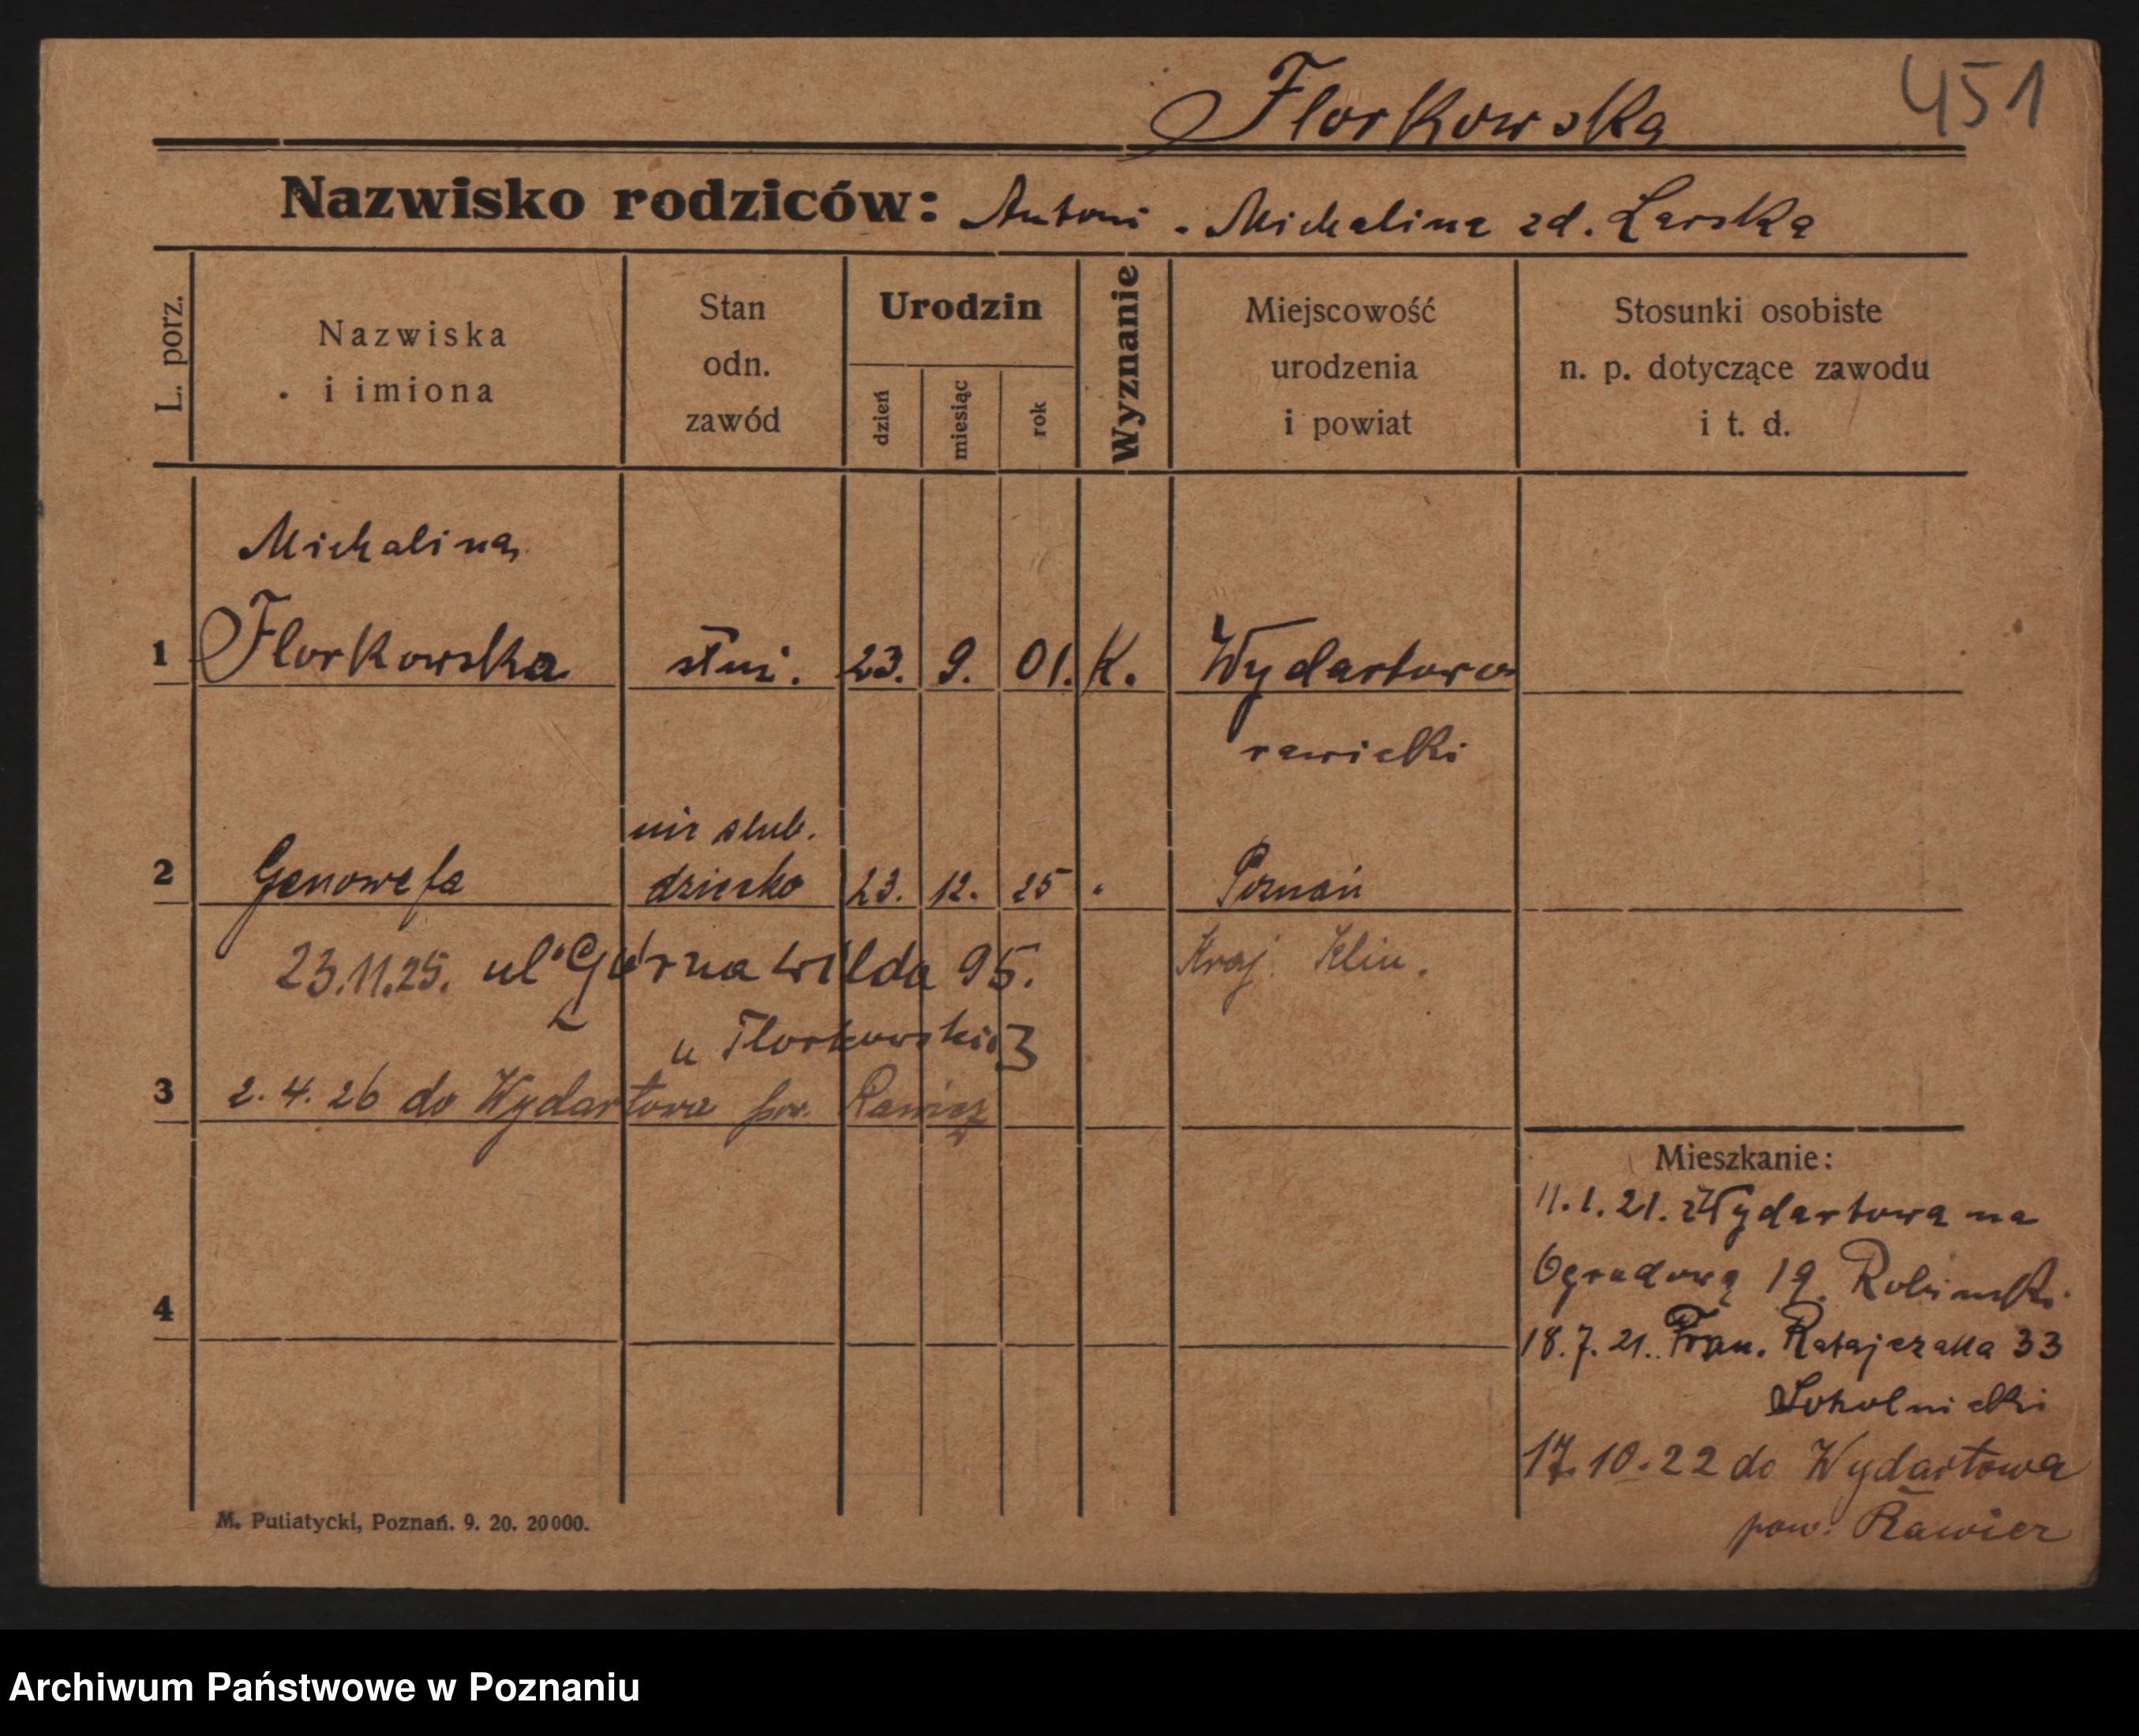 451
Florkowska
Nazwisko rodziców: Antoni - Michalina zd. Larska
L. porz.
Nazwiska
i imiona
Stan
odn.
zawód
Urodzin
dzień
miesiąc
rok
Wyznanie
Miejscowość
urodzenia
i powiat
Stosunki osobiste
n. p. dotyczące zawodu
i t. d.
Michalina
1 Florkowska służ. 23. 9. 01. K. Wydartowo
rawicki
nie ślub.
2 Genowefa dziecko 23. 12. 25 " Poznań
23.11.25. ul Górna Wilda 95. Kraj. Klin.
u Florkowskie
3 2.4.26 do Wydartowa pow. Rawicz
4
Mieszkanie:
11.1.21. z Wydartowa na
Ogrodową 19.
18.7.21. Fran. Ratajczaka 33
Sokolnicki
17.10.22 do Wydartowa
pow. Rawicz
M. Putiatycki, Poznań. 9. 20. 20000.
Archiwum Państwowe w Poznaniu